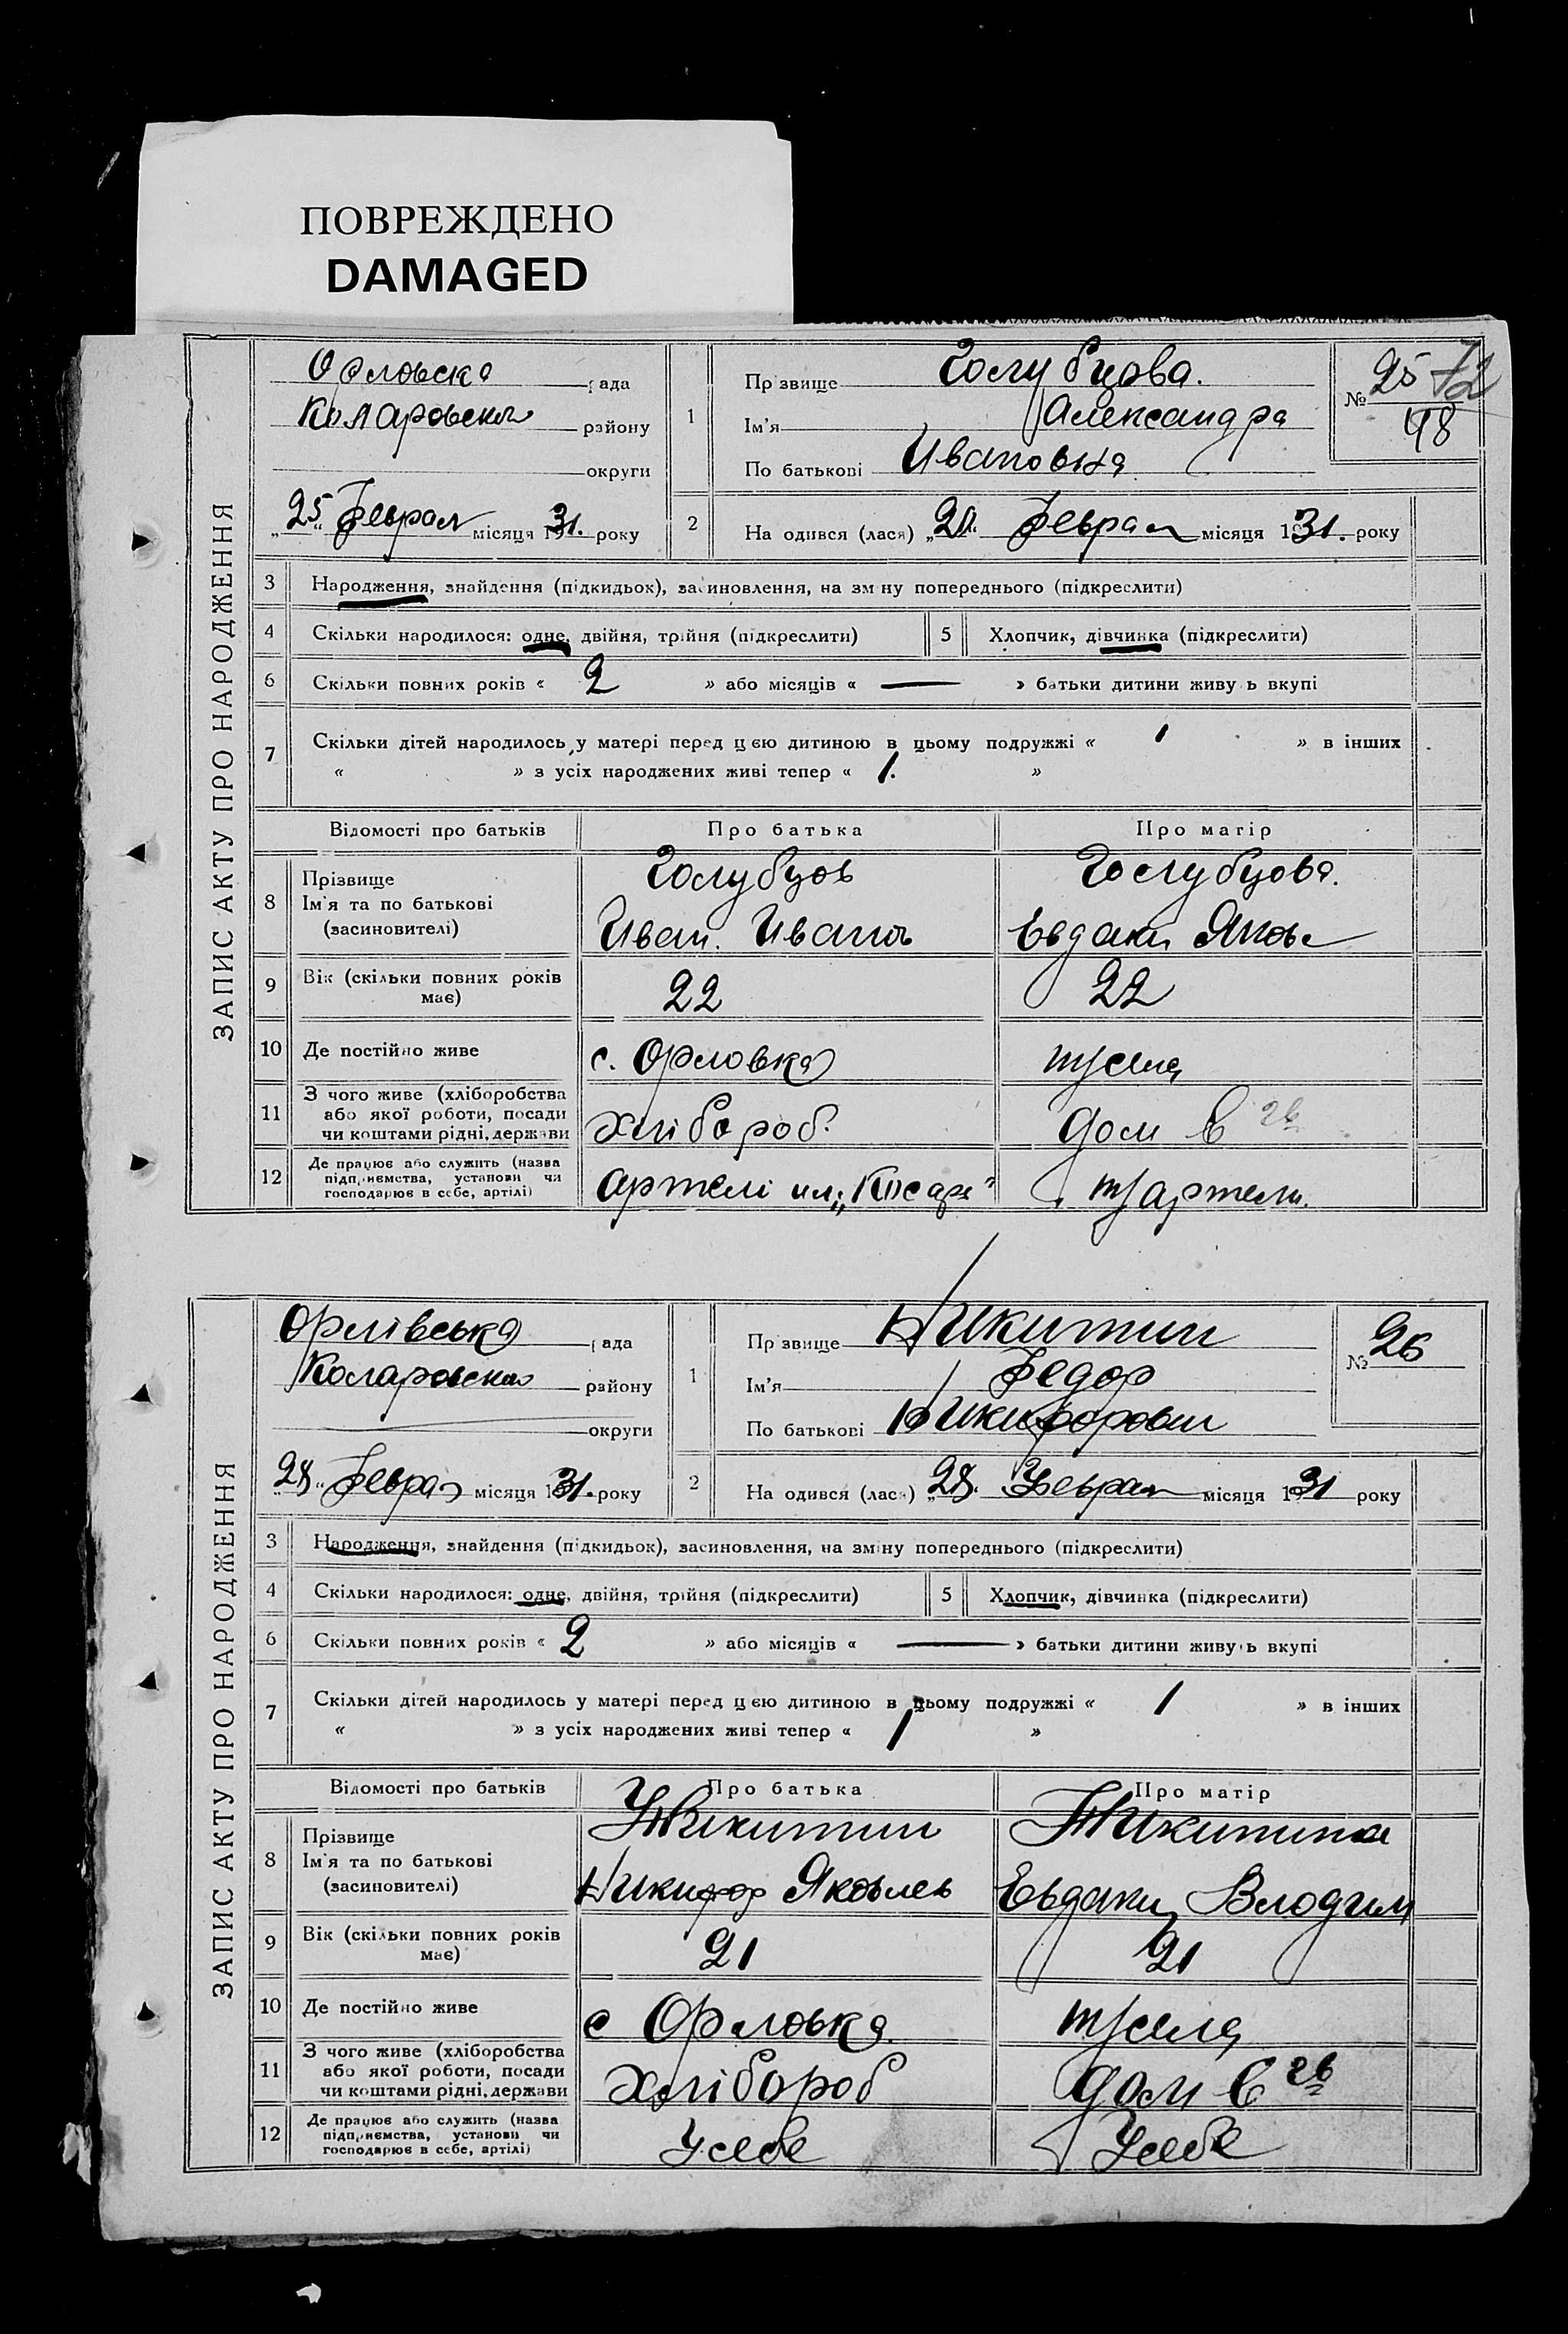 ПОВРЕЖДЕНО
DAMAGED
ЗАПИС АКТУ ПРО НАРОДЖЕННЯ
Орловска рада
Коларовски району
округи
25 Феврал місяця 1931. року
1
Прізвище Голубцова.
Ім'я Александра
По батькові Ивановна
№ 25 72
48
2 На одився (лася) „ “ Феврал місяця 1931. року
3 Народження, знайдення (підкидьок), засиновлення, на зміну попереднього (підкреслити)
4 Скільки народилося: одне, двійня, трійня (підкреслити) 5 Хлопчик, дівчинка (підкреслити)
6 Скільки повних років « 2 » або місяців « — » батьки дитини живуть вкупі
7 Скільки дітей народилось у матері перед цією дитиною в цьому подружжі « 1 » в інших
« » з усіх народжених живі тепер « 1. »
Відомості про батьків Про батька Про матір
8 Прізвище Голубцов Голубцова.
Ім'я та по батькові
(засиновителі) Иван. Иванов Евдоки Яковл
9 Вік (скільки повних років має) 22 22
10 Де постійно живе с. Орловка
11 З чого живе (хліборобства
або якої роботи, посади
чи коштами рідні, держави хлібороб. дом
12 Де працює або служить (назва
підприємства, установи чи
господарює в себе, артілі) артелі „Косарь“ артели.
ЗАПИС АКТУ ПРО НАРОДЖЕННЯ
Орлівська рада
Коларовски району
округи
28 Феврал місяця 1931. року
1
Прізвище Никитин
Ім'я Федор
По батькові Никифорович
№ 26
2 На одився (лася) „28“ Феврал місяця 1931 року
3 Народження, знайдення (підкидьок), засиновлення, на зміну попереднього (підкреслити)
4 Скільки народилося: одне, двійня, трійня (підкреслити) 5 Хлопчик, дівчинка (підкреслити)
6 Скільки повних років « 2 » або місяців « — » батьки дитини живуть вкупі
7 Скільки дітей народилось у матері перед цією дитиною в цьому подружжі « 1 » в інших
« » з усіх народжених живі тепер « 1 »
Відомості про батьків Про батька Про матір
8 Прізвище Никитин Никитина
Ім'я та по батькові
(засиновителі) Никифор Яковлев Евдоки Володим
9 Вік (скільки повних років має) 21 21
10 Де постійно живе с Орловка
11 З чого живе (хліборобства
або якої роботи, посади
чи коштами рідні, держави хлібороб дом
12 Де працює або служить (назва
підприємства, установи чи
господарює в себе, артілі) У себе У себе